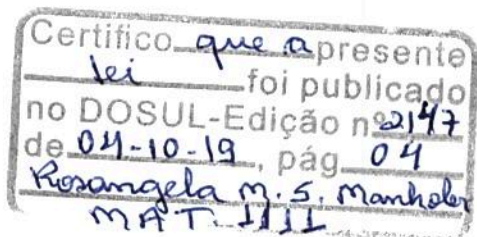 Certifico que a presente
lei foi publicado
no DOSUL-Edição nº 2147
de 04-10-19, pág 04
Rosangela M. S.
MAT. 1111